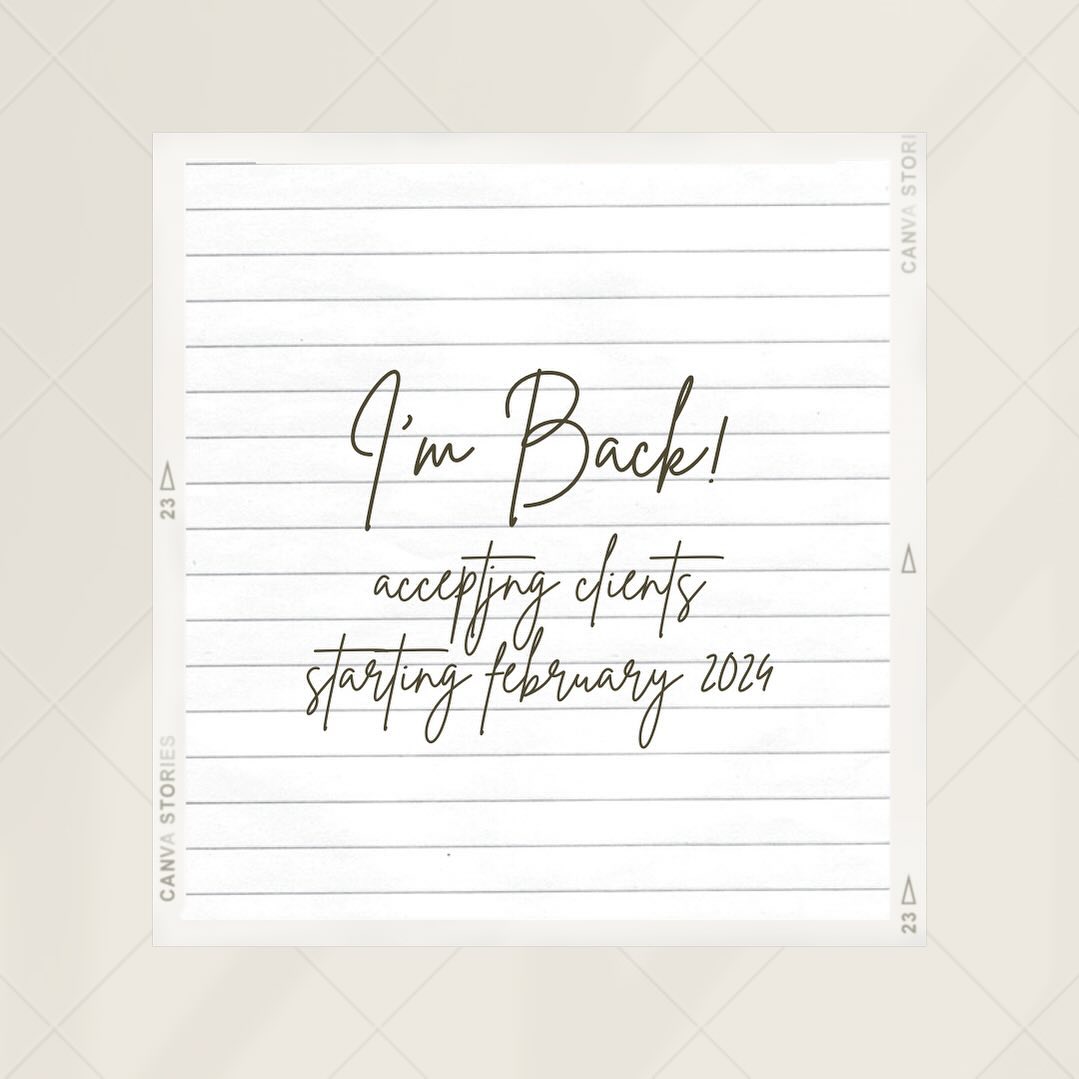 CANVA STORI
I'm Back!
23
accepting clients
starting february 2024
CANVA STORIES
23